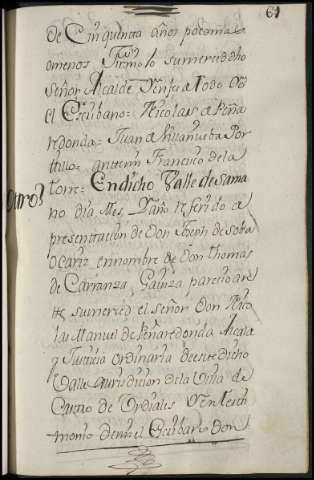 61
de Cinquenta años poco mas
o menos Firmolo su merced dho
Señor Alcalde Yen fee de todo Yo
el Escribano = Nicolas de Peña
redonda = Juan de Villanueba Por
tillo = ante mi Francisco de la
Torre = En dicho Valle de Sama
Otro
no dia Mes, Y año referido a
presentacion de Don Joseph de Soba
en nombre de Don Thomas
de Carranza, parecio an
te su merced el señor Don Nico
las Manuel de Peñaredonda Alcalde
y Justicia ordinaria de este dicho
Valle Jurisdicion de la Villa de
Castro de Urdiales Y en testi
monio de mi el Escribano Don